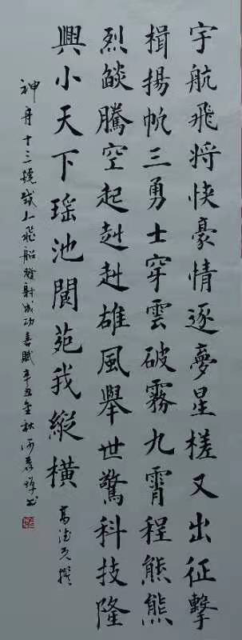 宇航飛将快豪情逐夢星槎又出征擊
楫揚帆三勇士穿雲破霧九霄程熊熊
烈燄騰空起赳赳雄風舉世驚科技隆
興小天下瑶池閬苑我縱橫 撰
神舟十三號載人飛船發射成功喜賦辛丑金秋